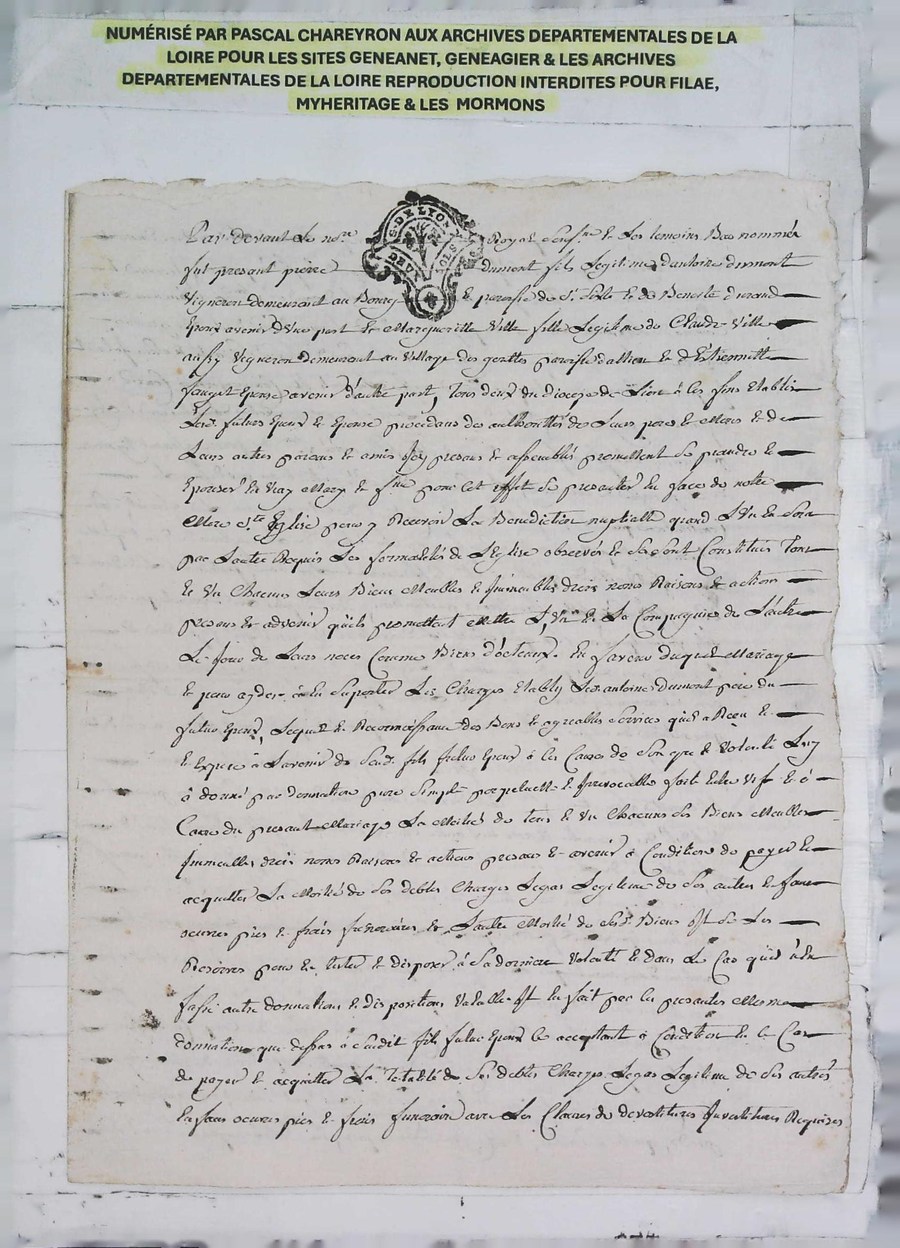 NUMÉRISÉ PAR PASCAL CHAREYRON AUX ARCHIVES DEPARTEMENTALES DE LA
LOIRE POUR LES SITES GENEANET, GENEAGIER & LES ARCHIVES
DEPARTEMENTALES DE LA LOIRE REPRODUCTION INTERDITES POUR FILAE,
MYHERITAGE & LES MORMONS
G. DE LYON
DEUX SOLS
Par devant Le no.re Royal sous.ne & Les temoins Bas nommés
fut presant pierre dumont fils Legitime dantoine dumont
Vigneron demeurant au Bourg & paroisse de s.t & de Benoite durand
Epoux avenir d'une part Et Margueritte Ville fille Legitime de Claude Ville
aussy Vigneron demeurant au Village des parroisse & d'Etiennette
Epouse avenir d'autre part, tous deux du dioceze de Lion à Ces fins Etablis
Led. futurs Epoux & Epouse procedans des authorittés de Leurs peres & Meres & de
Leurs autres parens & amis Icy presans & assemblés promettent Se prandre &
Epouser En Vray Mary & f.me pour Cet effet Se presanter En face de notre
Mere s.te Eglise pour y Recevoir La Benediction nuptialle quand L'Un En Sera
par L'autre Requis Les formalités de L'Eglise observées & Se Sont Constitués Tous
& Un Chacuns Leurs Biens Meubles & Immeubles drois noms Raisons & actions
presans & advenir qu'ils promettent Mettre L'Un En La Compagnie de L'autre
Le jour de Leurs noces Comme Biens d'octeaux. En faveur duquel Mariage
& pour ayder à En Suporter Les Charges Etably Led. antoine dumont pere du
futur Epoux, Lequel En Reconnoissance des Bons & agreables Services qu'il a Receu &
& Espere à L'avenir de Sond. fils futur Epoux à Ces Cause de Son gre & Volonté Luy
à donné par donnation pure Simple perpetuelle & Irrevocable fait Entre Vifs & à
Cause du presant Mariage La Moitié de tous & Un Chacuns Ses Biens Meubles
Immeubles drois noms Raisons & actions presans & avenir à Condition de payer &
acquitter La Moitié de Ses debtes Charges Legas Legitime de Ses autres Enfans
oeuvres pies & frais funeraires & L'autre Moitié de Sesd. Biens Il Se Les
Reserves pour En tester & disposer à Sa derniere Volonté & dans Le Cas qu'il n'En
fasse autre donnation & disposition Valable Il En fait par Ces presantes Mesme
donnation que dessus à Sondit fils futur Epoux Ce acceptant à Condition En Ce Cas
de payer & acquitter La Totalité de Ses debtes Charges Legas Legitime de Ses autres
Enfans oeuvres pies & frais funeraire avec Les Clauses de devestitures Investitures Requises